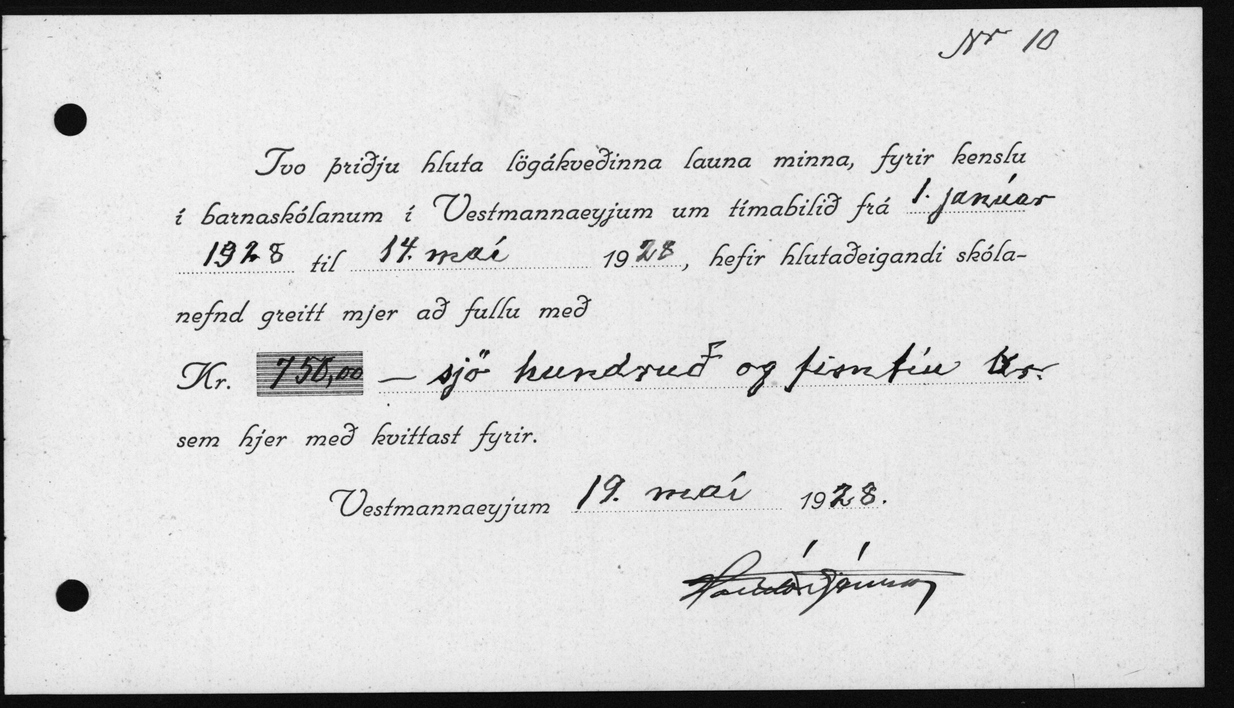 Nr 10
Tvo þriðju hluta lögákveðinna launa minna, fyrir kenslu
í barnaskólanum í Vestmannaeyjum um tímabilið frá 1. janúar
1928 til 14. maí 1928, hefir hlutaðeigandi skóla-
nefnd greitt mjer að fullu með
Kr. 750,00 — sjö hundruð og fimtíu kr.
sem hjer með kvittast fyrir.
Vestmannaeyjum 19. maí 1928.